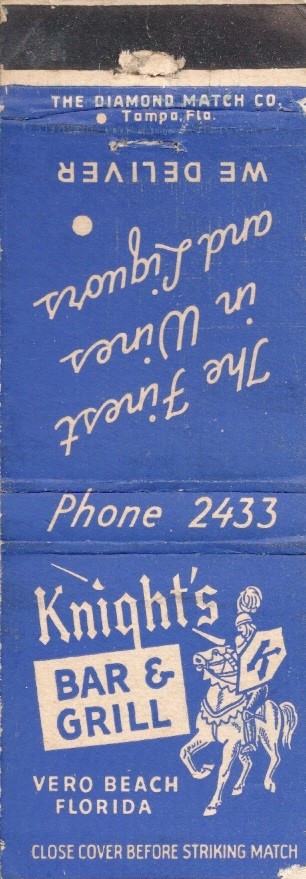 THE DIAMOND MATCH CO.
Tampa, Fla.
The Finest
in Wines
and Liquors
WE DELIVER
Phone 2433
Knight's
BAR &
GRILL
K
VERO BEACH
FLORIDA
CLOSE COVER BEFORE STRIKING MATCH